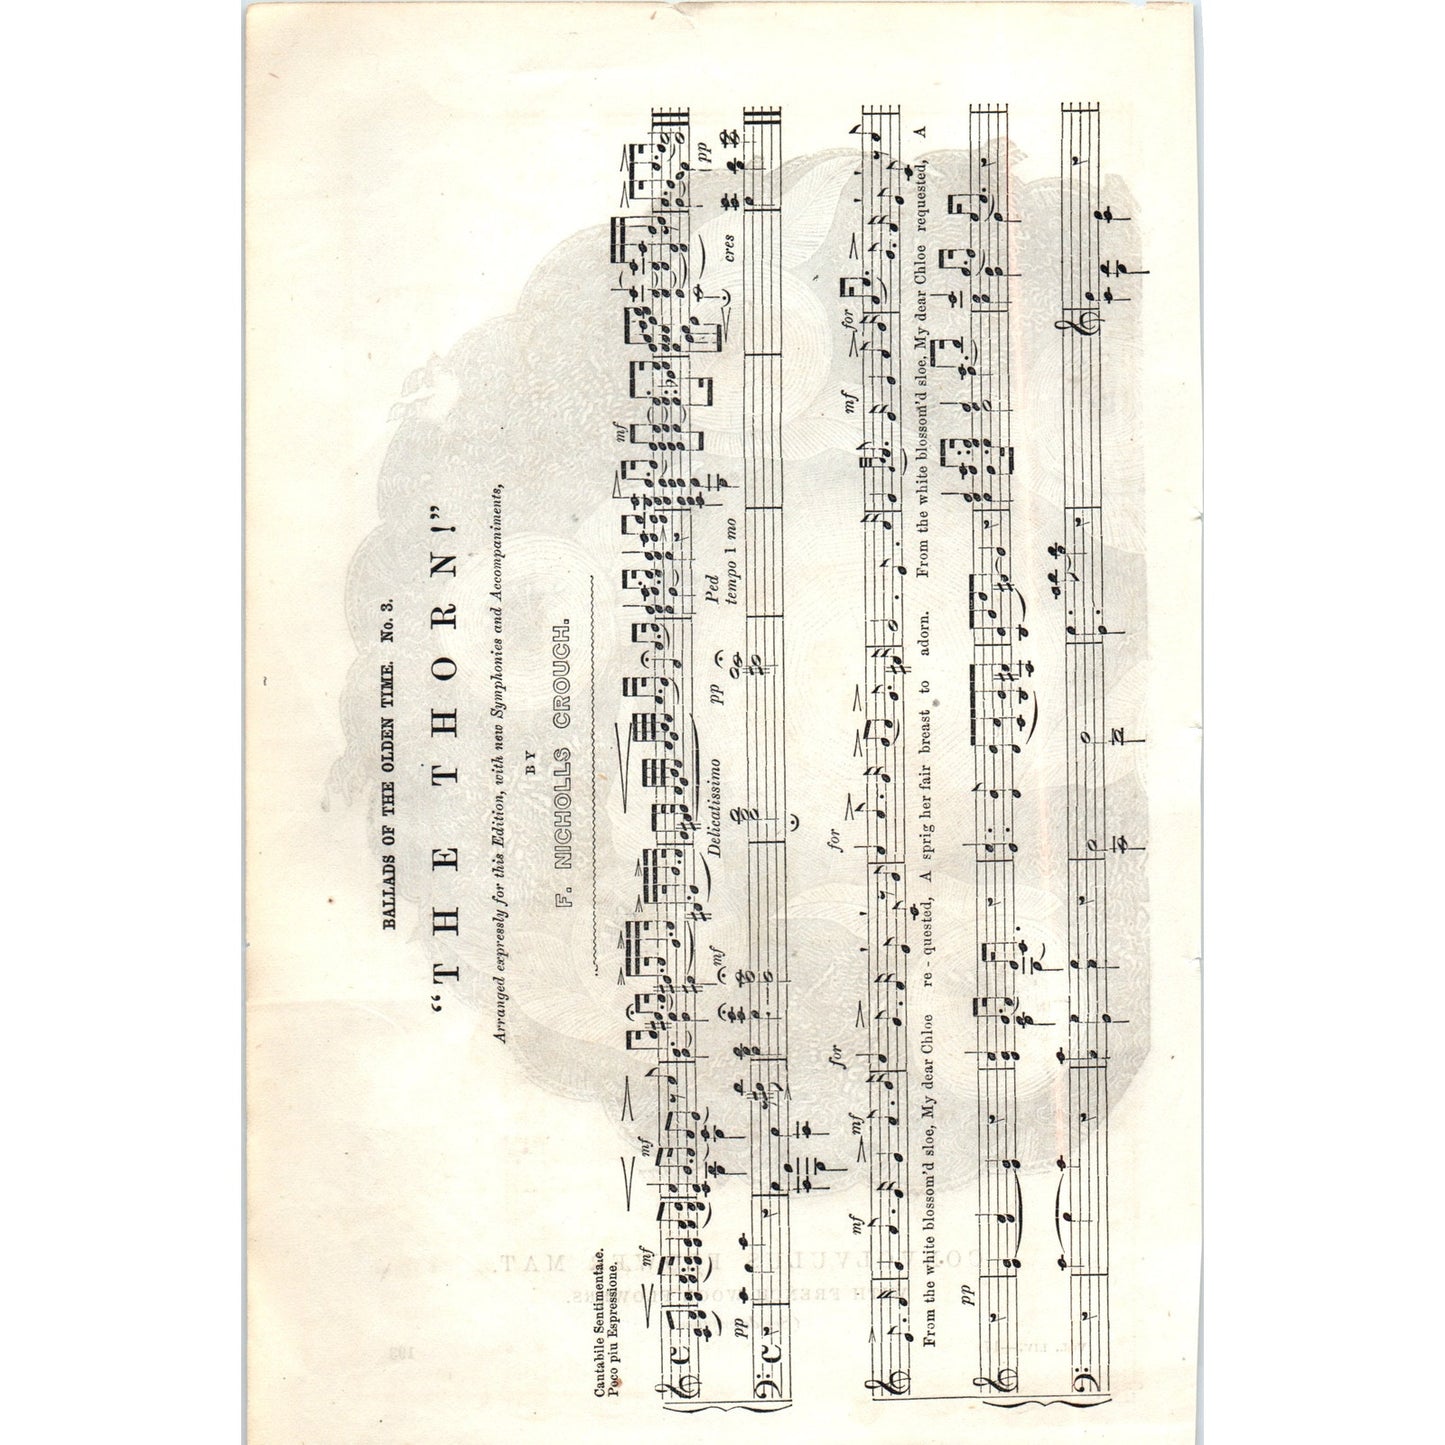 BALLADS OF THE OLDEN TIME. No. 3.
“THE THORN!”
Arranged expressly for this Edition, with new Symphonies and Accompaniments,
BY
F. NICHOLLS CROUCH.
Cantabile Sentimentale.
Poco piu Espressione.
mf mf mf
pp mf Delicatissimo pp Ped cres pp
tempo 1 mo
mf mf for for mf for
From the white blossom'd sloe, My dear Chloe re - quested, A sprig her fair breast to adorn. From the white blossom'd sloe, My dear Chloe requested, A
pp